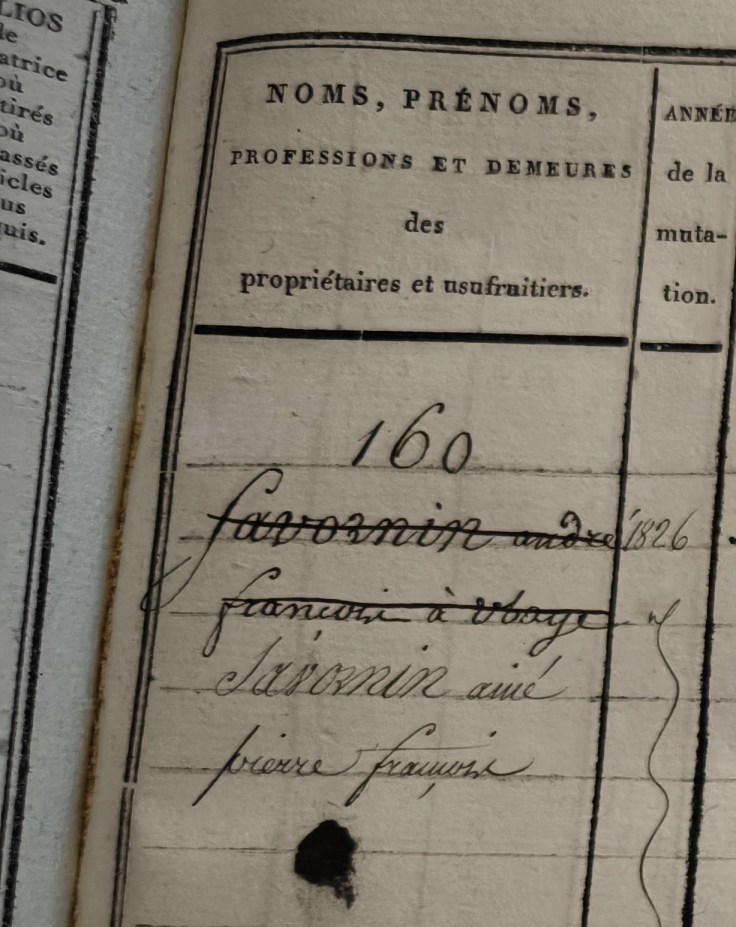 LIOS
de
atrice
où
tirés
où
assés
icles
us
uis.
NOMS, PRÉNOMS,
PROFESSIONS ET DEMEURES
des
propriétaires et usufruitiers.
ANNÉE
de la
muta-
tion.
160
Savornin andré 1826
francois à ubaye
Savornin ainé
pierre françois